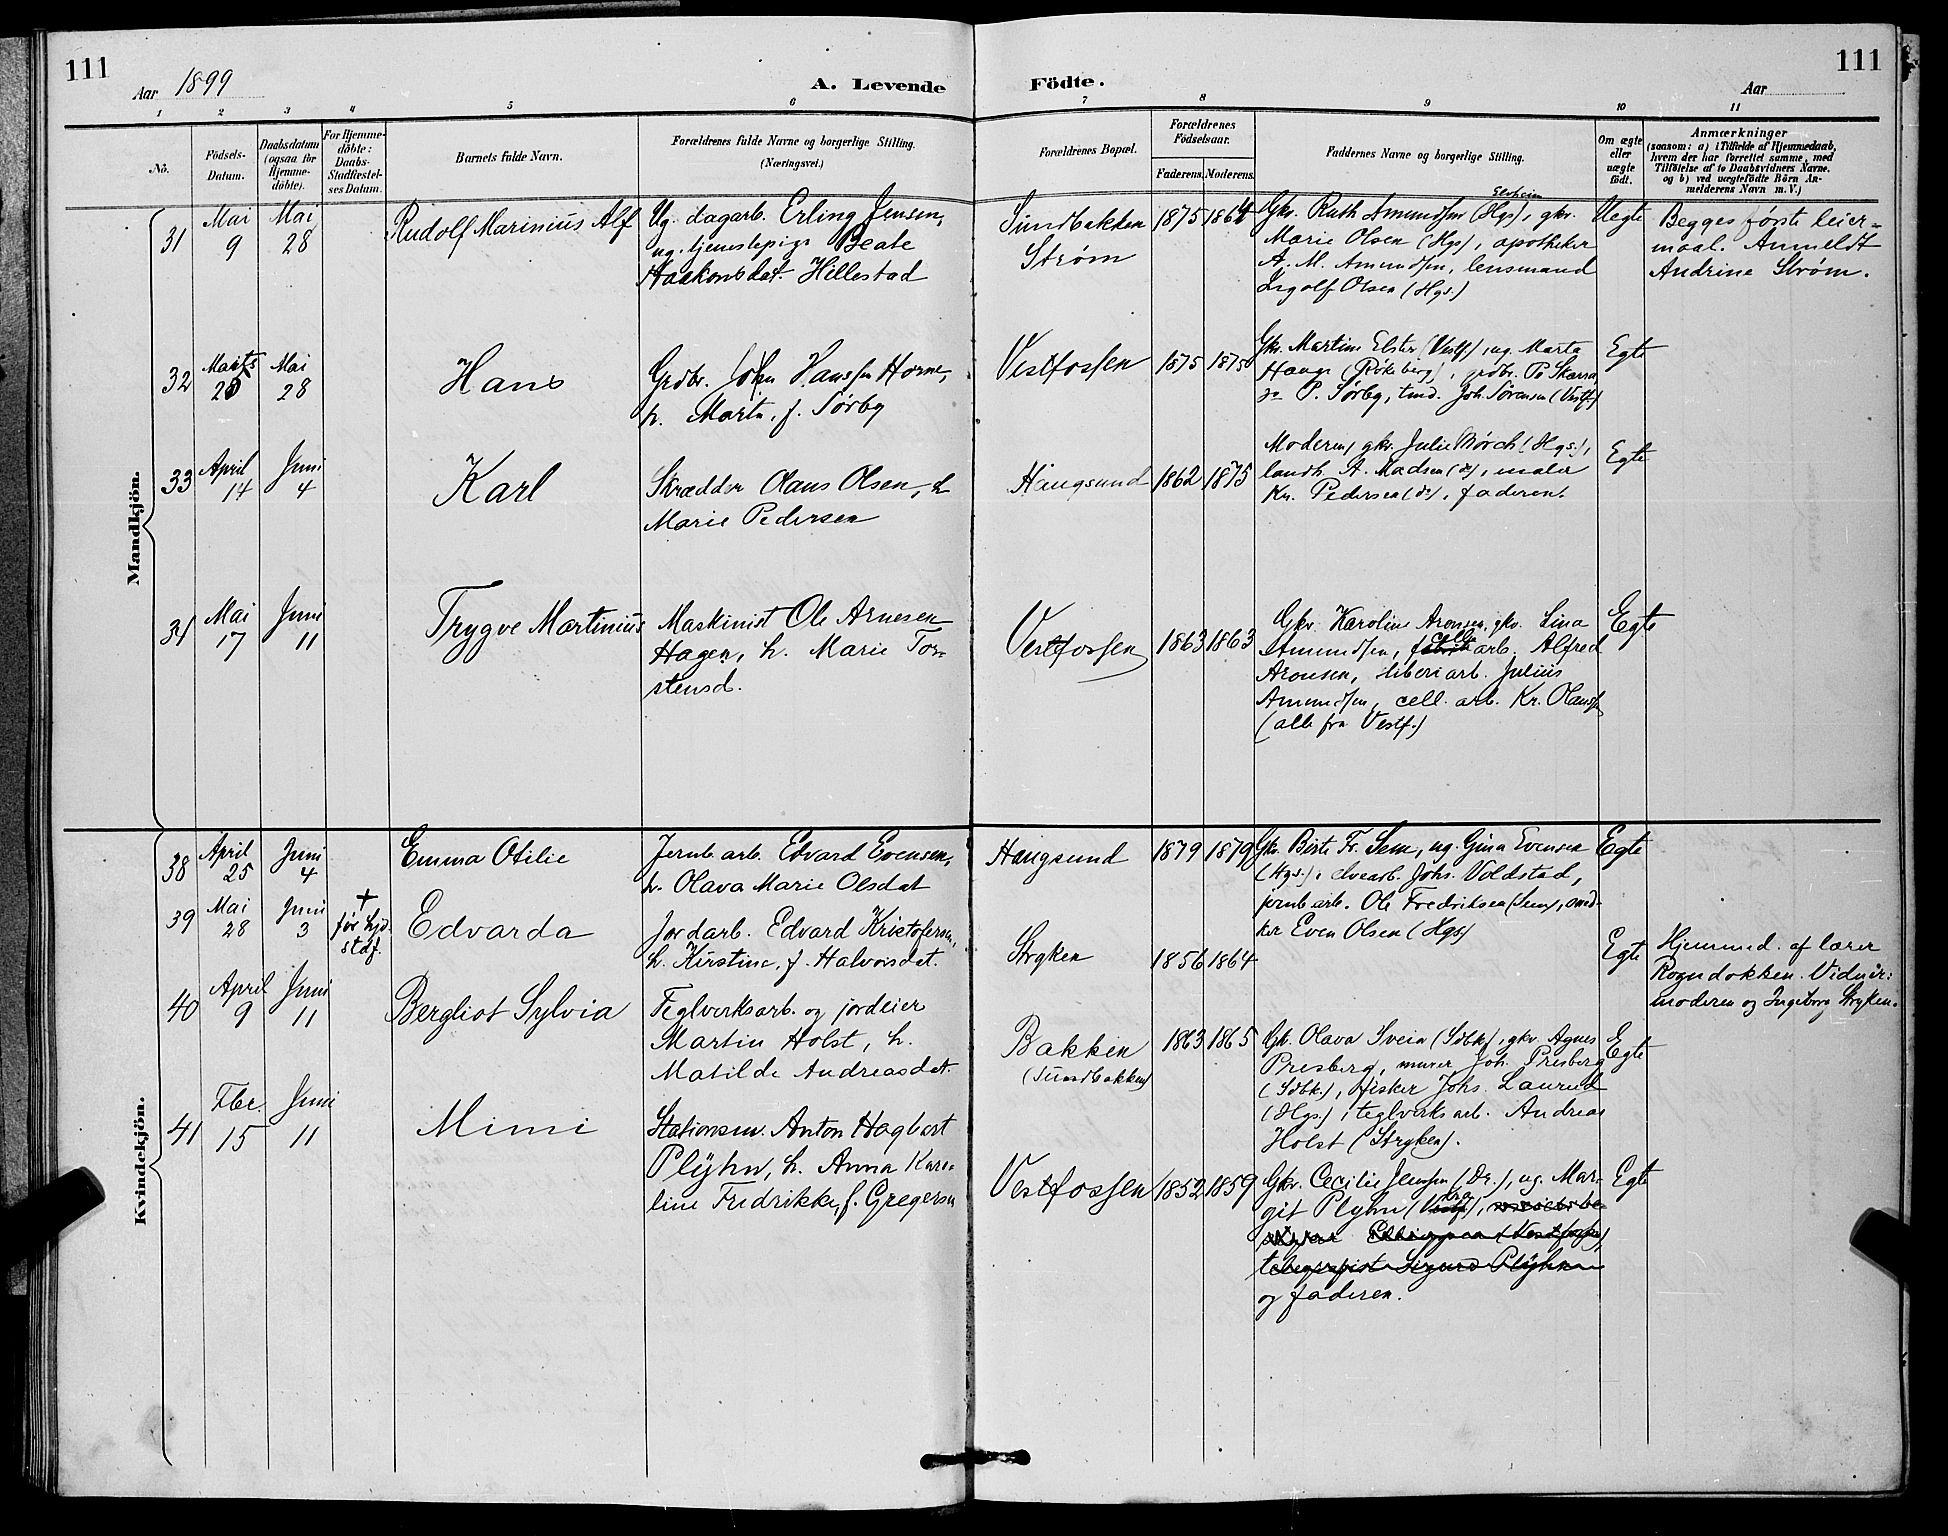 111
Aar 1899
A. Levende
Födte.
Aar
111
1 2 3 4 5 6 7 8 9 10 11
No.
Födsels-
Datum.
Daabsdatum
(ogsaa for
Hjemme-
döbte).
For Hjemme-
döbte:
Daabs-
Stadfæstel-
ses Datum.
Barnets fulde Navn.
Forældrenes fulde Navne og borgerlige Stilling.
(Næringsvei.)
Forældrenes Bopæl.
Forældrenes
Födselsaar.
Faderens. Moderens.
Faddernes Navne og borgerlige Stilling.
Om ægte
eller
uægte
födt.
Anmærkninger
(saasom: a) i Tilfælde af Hjemmedaab,
hvem der har forrettet samme, med
Tilföielse af to Daabsvidners Navne.
og b) ved uægtefödte Börn An-
melderens Navn m. V.)
Mandkjön.
31
Mai
9
Mai
28
Rudolf Marinius Alf
Ug. dagarb. Erling Jensen,
ug. tjenestepige Beate
Haakonsdat. Hillestad
Sundbakken
Strøm
1875 1864
Gkv. Ruth Amundsen (Hgs), gkv.
Marie Olsen (Hgs), apotheker
A. M. Amundsen, lensmand
Ingolf Olsen (Hgs.)
Uegte
Begges første leier=
maal. Anmeldt
Andrine Strøm.
32
Marts
Mai
28
Hans
Grdbr. John Hansen Horne,
h. Marta, f. Sørby
Vestfossen
1875 1875
Gkv. Martine Elster (Vestf.), ug. Marta
Hauge
P. Sørby, tmd. Joh. Sørensen (Vestf.)
Egte
33
April
14
Juni
4
Karl
Skrædder Olaus Olsen, h
Marie Pedersen
Haugsund
1862 1875
Moderen, gkv. Julie Mørch (Hgs.),
landh. A. Madsen (do), maler
Kr. Pedersen (do), faderen.
Egte
34
Mai
17
Juni
11
Trygve Martinius
Maskinist Ole Arnesen
Hagen, h. Marie Tor=
stensd.
Vestfossen
1863 1863
Gkv. Karoline Aronsen, gkv. Lina
cell.
Amundsen, arb. Alfred
Aronsen, sliberiarb. Julius
Amundsen, cell. arb. Kr. Olausen
(alle fra Vestf.)
Egte
Kvindekjön.
38
April
25
Juni
4
Emma Otilie
Jernb. arb. Edvard Evensen,
h. Olava Marie Olsdat
Haugsund
1879 1879
Gkv. Birte Fr. Sem, ug. Gina Evensen
(Hgs.), elvearb. Johs. Voldstad,
jernb. arb. Ole Fredriksen (Sem), sned-
ker Even Olsen (Hgs)
Egte
39
Mai
28
Juni
3
+
før
stdf.
Edvarda
Jordarb. Edvard Kristofersen,
h. Kirstine, f. Halvorsdat.
Stryken
1856 1864
Egte
Hjemmed. af lærer
Rogndokken. Vidner:
moderen og Ingeborg Stryken.
40
April
9
Juni
11
Bergliot Sylvia
Teglverksarb. og jordeier
Martin Holst, h.
Matilde Andreasdat.
Bakken
(Sundbakken)
1863 1865
Gk. Olava Svein (Sdbk), gkv. Agnes
Presberg, murer Joh. Presberg
(Sdbk.), fisker Johs. Laurud
(Hgs.), teglverksarb. Andreas
Holst (Stryken).
Egte
41
Fbr.
15
Juni
11
Mimi
Stationsm. Anton Hagbart
Plÿhn, h. Anna Karo=
line Fredrikke, f. Gregersen
Vestfossen
1852 1859
Gkv. Cecilie Jensen (Dr.), ug. Mar=
git Plyhn
telegrafist Sigurd Plÿhn
og faderen.
Egte